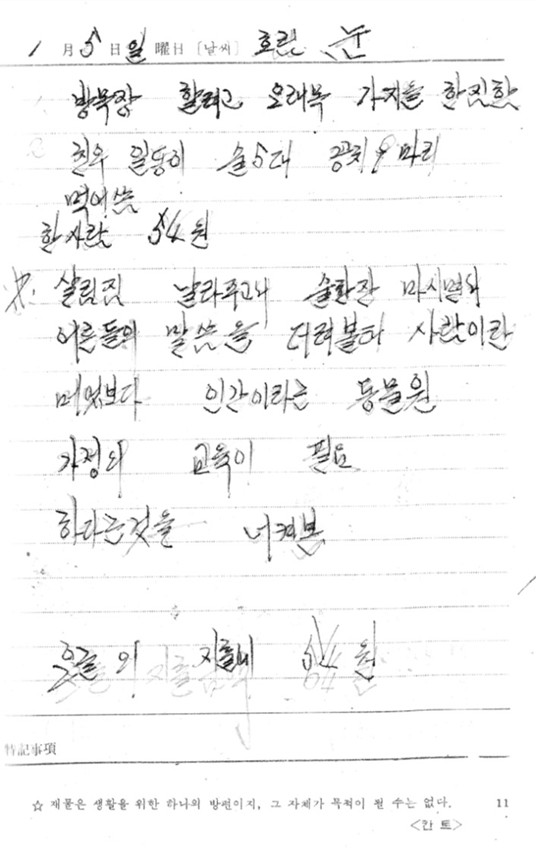 1 月 5 日 일 曜日 〔날씨〕 흐린 눈
방목장 할려고 오래목 가지를 한짐한
친우 일동이 술5대 공치 9마리
먹어씀
한사람 54원
살림집 날라주고나 술한잔 마시면서
어른들의 말씀을 더려볼타 사람이란
머엇보다 인간이라는 동물원
가정의 교육이 필요
하다는것을 너켜봄
오늘의 지출비 54원
特記事項
☆ 재물은 생활을 위한 하나의 방편이지, 그 자체가 목적이 될 수는 없다. 11
<칸트>